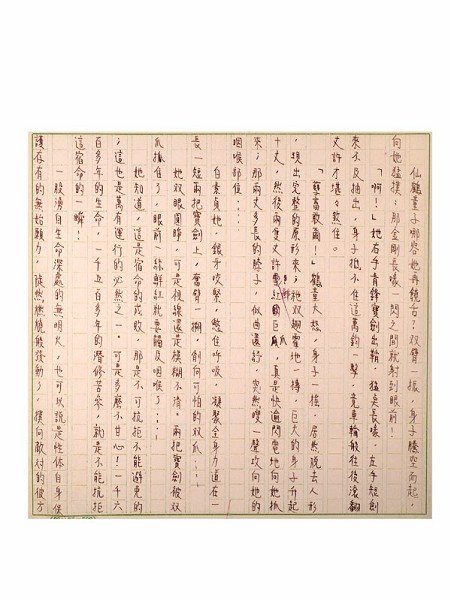 仙鶴童子哪容她再繞舌？双臂一振，身子騰空而起，
向她猛撲；那金剛長喙一閃之間就射到眼前！
「啊！」她右手青鋒寶劍出鞘，猛奐長喙，左手短劍
來不及抽出，身子抵不住這萬鈞一擊，竟車輪般往後滾翻
丈許才堪々煞住。
「孽畜敢爾！」鶴童大怒，身子一搖，居然脱去人形
，現出完整的原形來；她双翅霍地一擄，巨大的身子升起
十丈，然後兩隻丈許鮮紅巨爪，真是快逾閃電地向她抓
來；那兩丈多長的脖子，似曲還紆，突然嗖一聲攻向她的
咽喉部位……
白素貞她，銀牙咬緊，憋住呼吸，凝聚全身力道在一
長一短兩把寶劍上，奮臂一摑，削向可怕的双爪……
她双眼圓睜，可是視線還是模糊不清，兩把寶劍被双
爪抓住了，眼前一絲鮮紅就要觸及咽喉了……
她知道，這是宿命的成敗，那是不可抗拒不能避免的
；這也是萬有運行的必然之一。可是多麼不甘心！一千六
百多年的生命，一千五百多年的潛修苦煉，就是不能抗拒
這宿命的一瞬！
一股湧自生命深處的無明火，也可以說是性体自身保
護存有的無始願力，徒然燃燒般發動了，撲向敵対的彼方